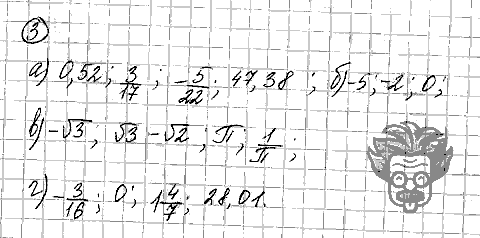 3
а) 0,52; 3/17; -5/22; 47,38; б) -5; -2; 0;
в) -√3; √3 - √2; π; 1/π;
г) -3/16; 0; 1 4/7; 28,01.